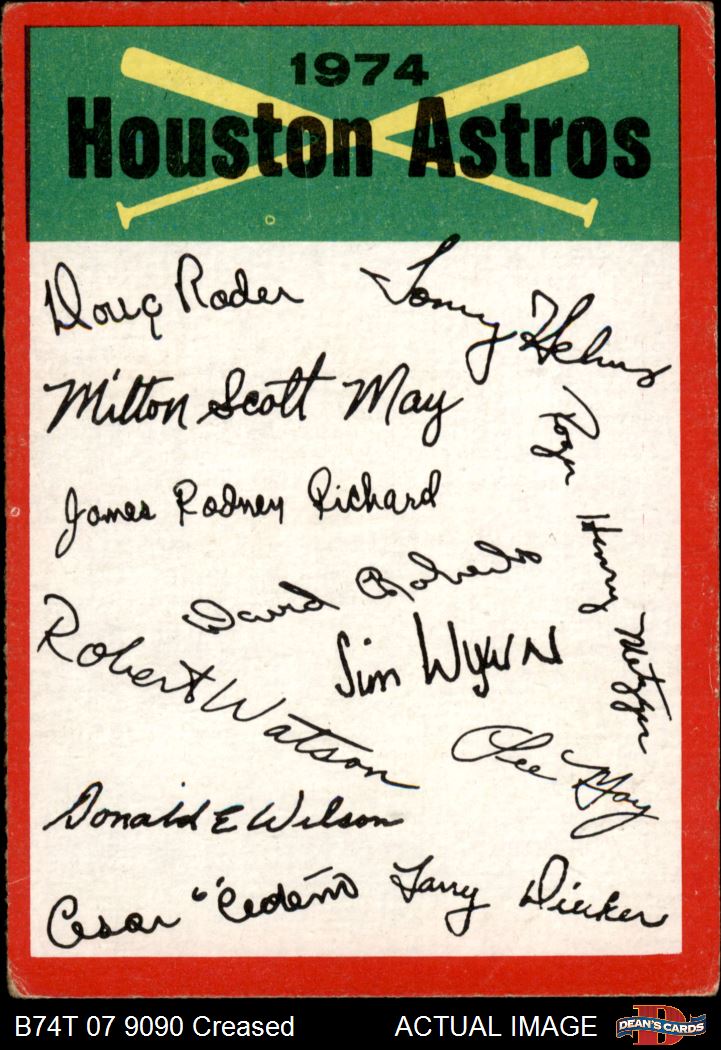 1974
Houston Astros
Doug Rader
Tommy Helms
Milton Scott May
Roger Henry Metzger
James Rodney Richard
David Roberts
Jim Wynn
Robert Watson
Lee May
Donald E Wilson
Cesar "Cedeño
Larry Dierker
B74T 07 9090 Creased
ACTUAL IMAGE
D
DEAN'S CARDS